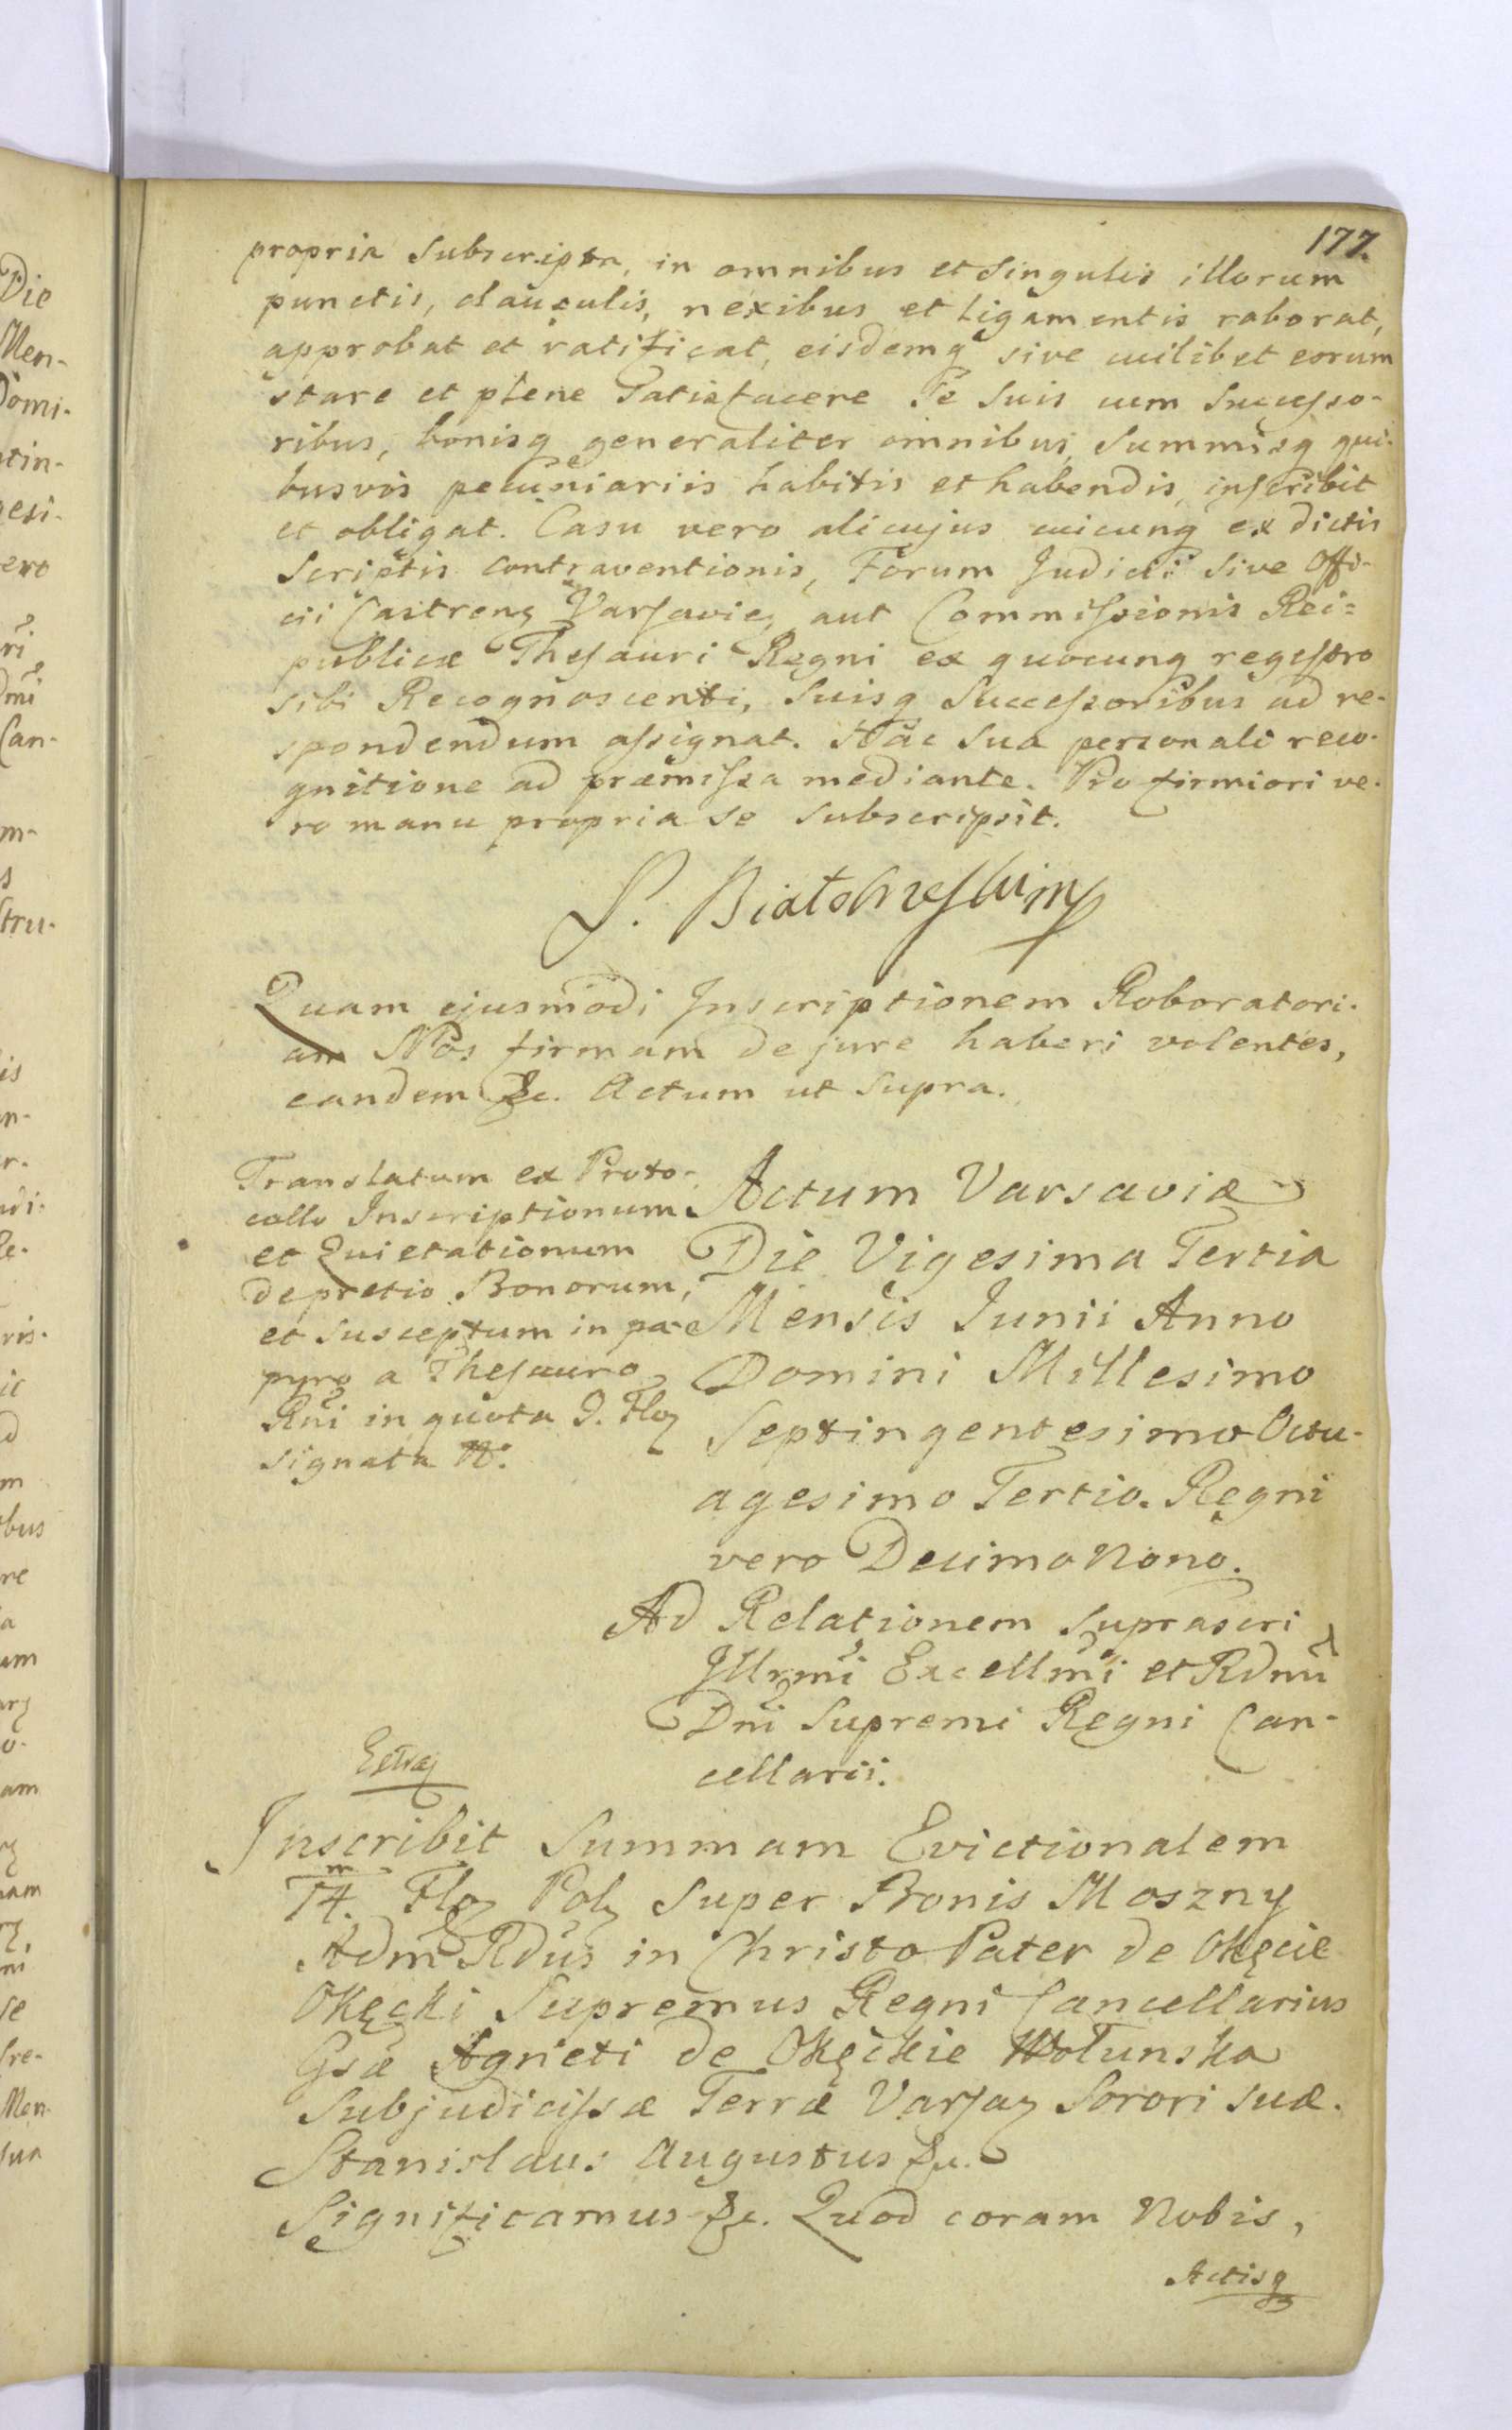 177.
propria Subscripta, in omnibus et Singulis illorum
punctis, clausulis, nexibus et ligamentis roborat,
approbat et ratificat, eisdemq sive cuilibet eorum
stare et plene Satisfacere Se Suis cum Successo-
ribus, bonisq generaliter omnibus, Summisq qui-
busvis pecuniariis habitis et habendis, inscribit
et obligat. Casu vero alicujus cuicunq ex dictis
Scriptis contraventionis, Forum Judicii Sive Offi-
cii Castrenz Varsavieñ, aut Commissionis Rei=
publicæ Thesauri Regni ex quocunq regestro
sibi Recognoscenti, Suisq Successoribus ad re-
spondendum assignat. Hac Sua personali reco-
gnitione ad præmissa mediante. Pro firmiori ve-
ro manu propria se Subscripsit.
Quam ejusmodi Inscriptionem Roboratori-
am Nos firmam de jure haberi volentes,
eandem &c. Actum ut Supra.
Translatum ex Proto-
collo Inscriptionum
et Quietationum
de pretio Bonorum,
et susceptum in pa-
pyro a Thesauro
Rñi in quota 9. Floz
signata
Actum Varsaviæ
Die Vigesima Tertia
Mensis Junii Anno
Domini Millesimo
Septingentesimo Octu-
agesimo Tertio. Regni
vero Decimo Nono.
Ad Relationem Suprascri
Illrmi Excellmi et Rdmi
Dni Supremi Regni Can-
cellarii.
Inscribit Summam Evictionalem
14.m Floz Polz Super Bonis Moszny
Adm Rdus in Christo Pater de Okęcie
Okęcki Supremus Regni Cancellarius
Gsæ Agneti de Okęckie Wotunska
Subjudicissæ Terræ Varsaz Sorori suæ.
Stanislaus Augustus &c.
Significamus &c. Quod coram Nobis,
Actisq